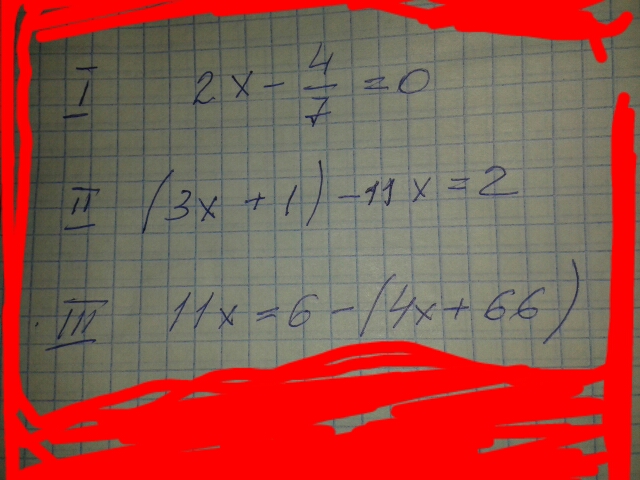 I 2x - 4/7 = 0
II (3x + 1) - 11x = 2
III 11x = 6 - (4x + 66)